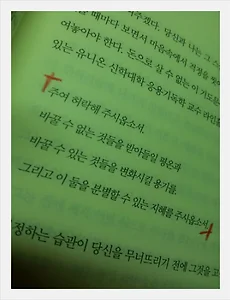 때마다 보면서 마음속에서 걱정을
여놓아야 한다. 돈으로 살 수 없는 이 기도문
있는 유니온 신학대학 응용기독학 교수 라인홀
주여 허락해 주시옵소서.
바꿀 수 없는 것들을 받아들일 평온과
바꿀 수 있는 것들을 변화시킬 용기를.
그리고 이 둘을 분별할 수 있는 지혜를 주시옵소서.
정하는 습관이 당신을 무너뜨리기 전에 그것을 고